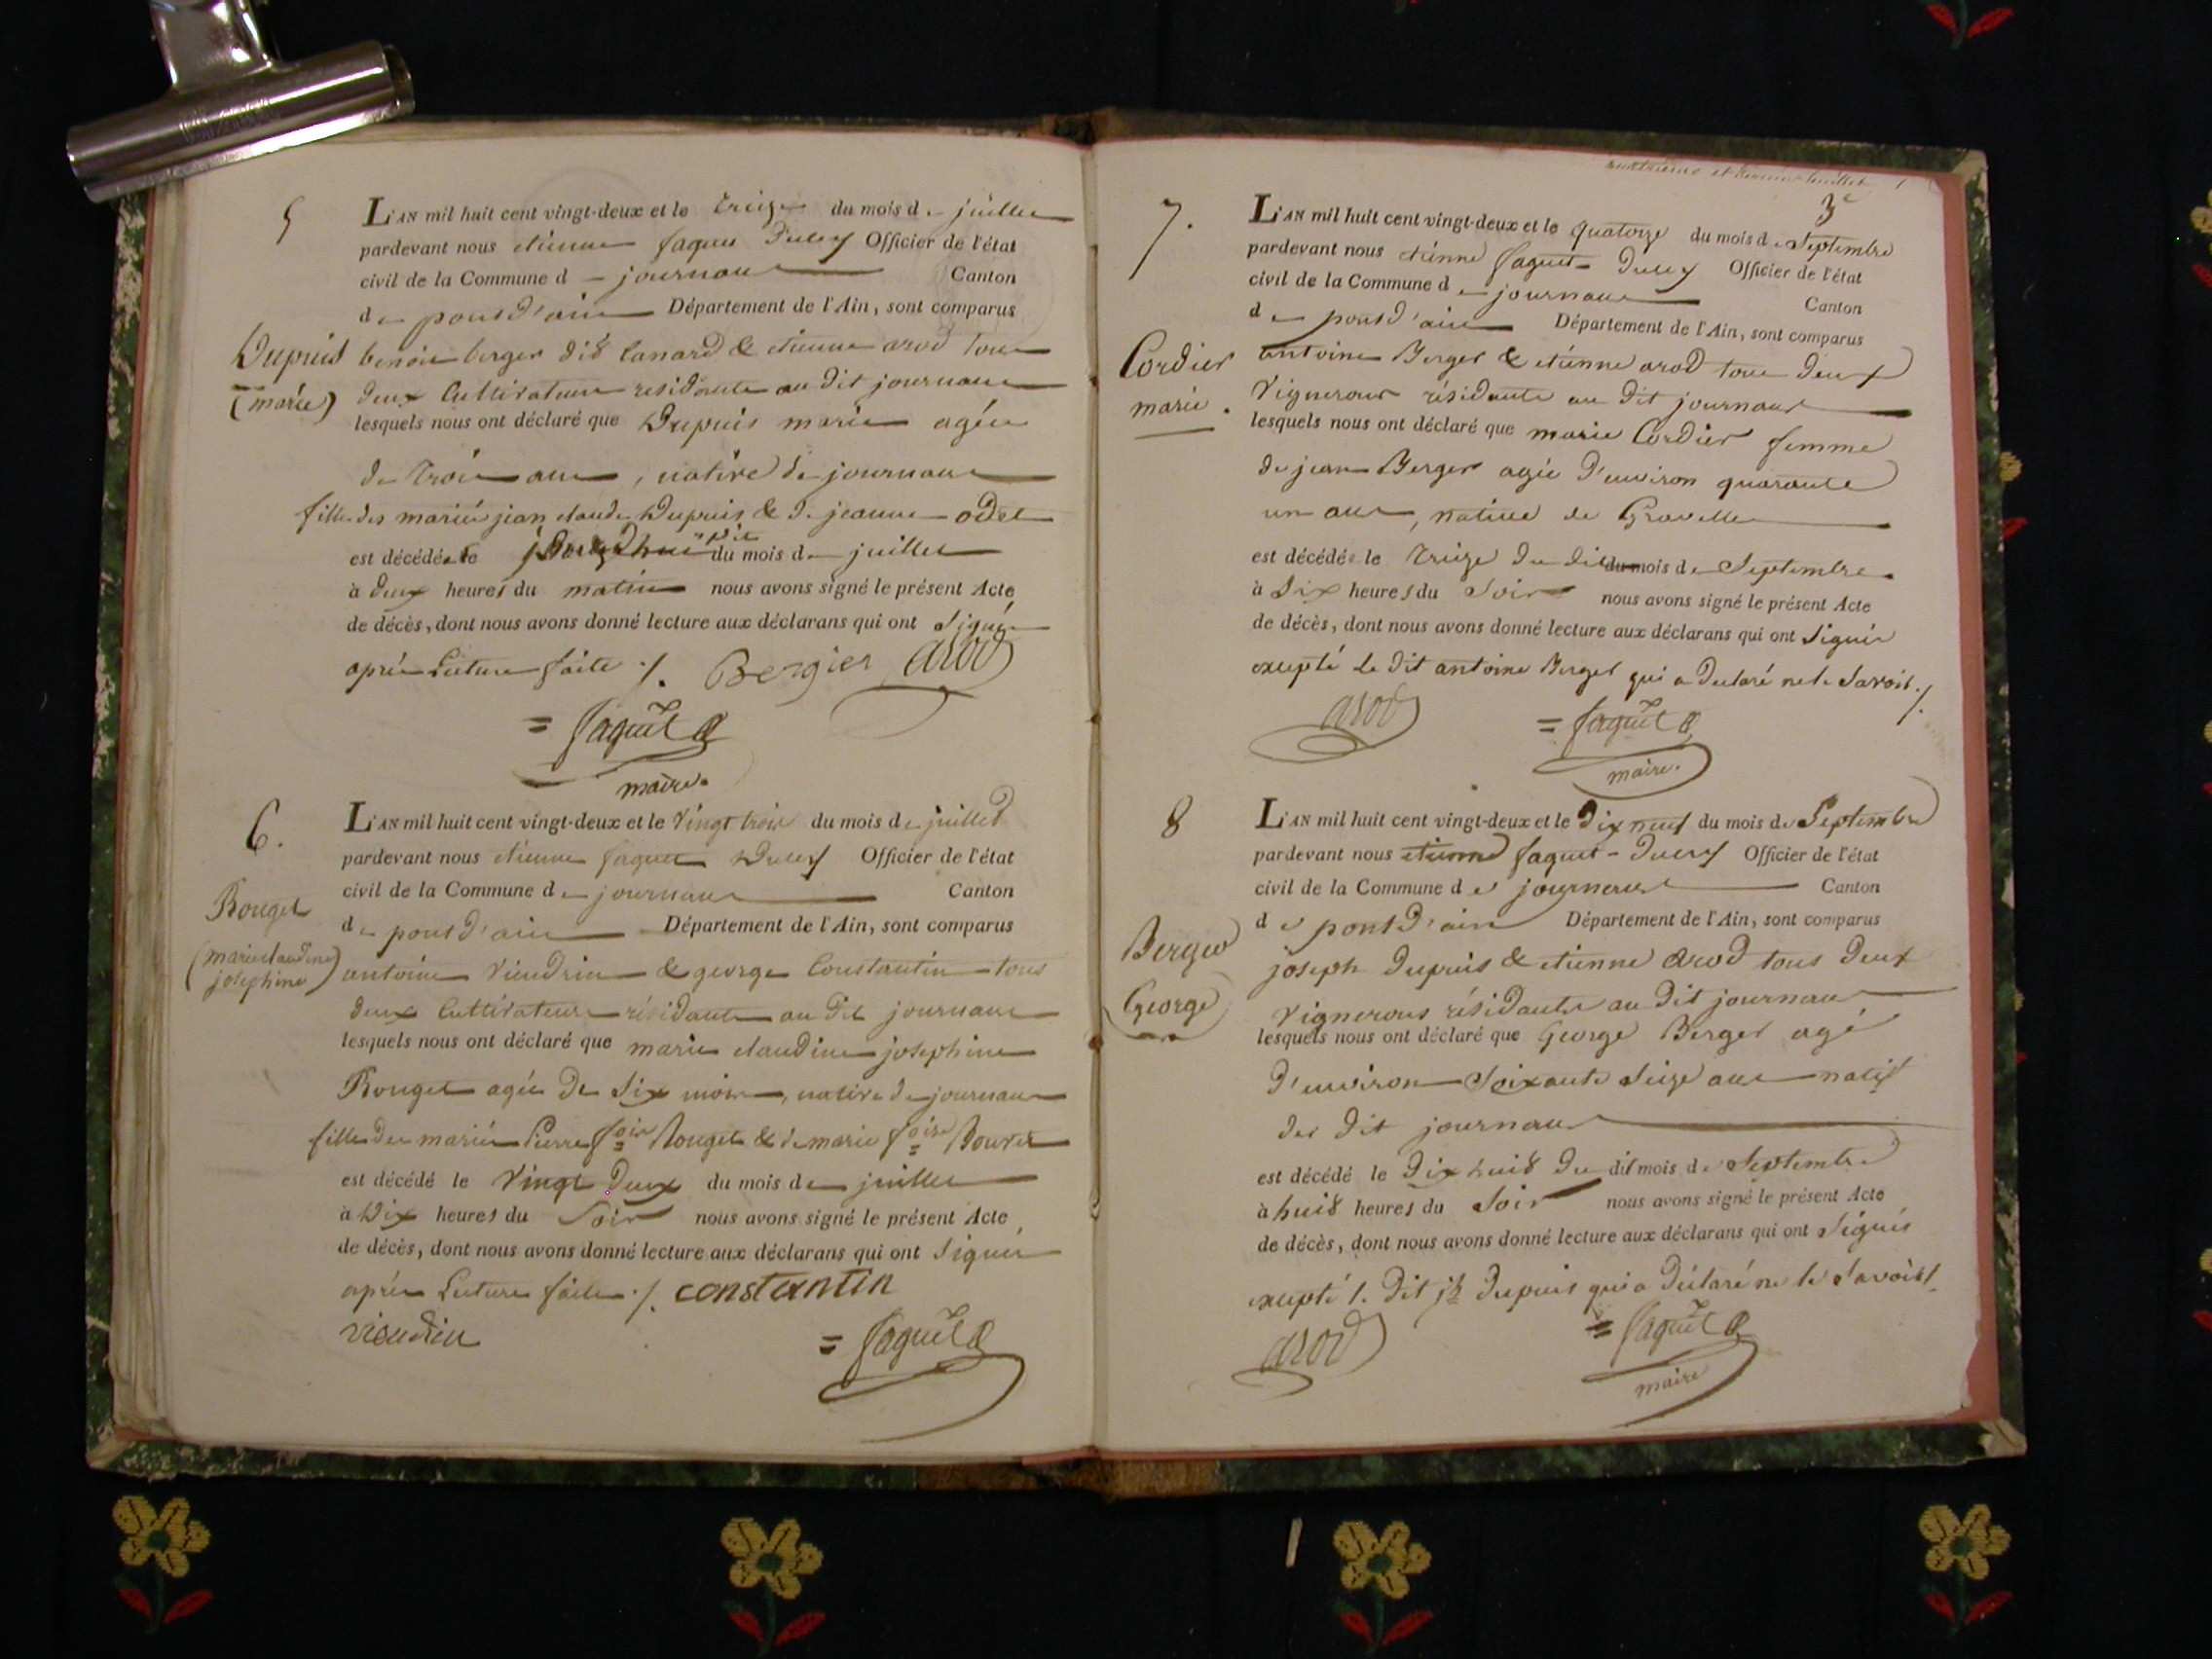 5
L'AN mil huit cent vingt-deux et le treize du mois de juillet
pardevant nous etienne faquet Officier de l'état
civil de la Commune de journans Canton
de pont d'ain Département de l'Ain, sont comparus
Dupuis
(marie)
benoit berger dit Canard & etienne arod tous
deux Cultivateurs residants au dit journans
lesquels nous ont déclaré que Dupuis marie agée
de trois ans, native de journans
fille des mariés jean claude Dupuis & de jeanne odet
est décédée le jourd'hui du mois de juillet
à deux heures du matin nous avons signé le présent Acte
de décès, dont nous avons donné lecture aux déclarans qui ont signés
après Lecture faite ./. Bergier arod
= faquet
maire.
6.
L'AN mil huit cent vingt-deux et le vingt trois du mois de juillet
pardevant nous etienne faquet Officier de l'état
civil de la Commune de journans Canton
de pont d'ain Département de l'Ain, sont comparus
Rouget
(marie claudine
josephine)
antoine Vieudrin & george Constantin tous
deux Cultivateurs résidants au dit journans
lesquels nous ont déclaré que marie claudine josephine
Rouget agée de six mois, native de journans
fille des mariés Pierre Rouget & de marie
est décédé le vingt deux du mois de juillet
à Dix heures du Soir nous avons signé le présent Acte
de décès, dont nous avons donné lecture aux déclarans qui ont signés
après Lecture faite ./. constantin
vieudrin = faquet
et dernier feuillet
3e
7.
L'AN mil huit cent vingt-deux et le quatorze du mois de Septembre
pardevant nous etienne faquet- Officier de l'état
civil de la Commune de journans Canton
de pont d'ain Département de l'Ain, sont comparus
Cordier
marie.
antoine Berger & etienne arod tous deux
Vignerons résidants au dit journans
lesquels nous ont déclaré que marie Cordier femme
de jean Berger agée d'environ quarante
un ans, native de Gravelle
est décédée le treize du dit mois de Septembre
à Dix heures du Soir nous avons signé le présent Acte
de décès, dont nous avons donné lecture aux déclarans qui ont signés
excepté le dit antoine Berger qui a declaré ne le savoir ./.
arod = faquet
maire.
8
L'AN mil huit cent vingt-deux et le Dix neuf du mois de Septembre
pardevant nous etienne faquet- Officier de l'état
civil de la Commune de journans Canton
de pont d'ain Département de l'Ain, sont comparus
Berger
George
joseph Dupuis & etienne arod tous deux
Vignerons résidants au dit journans
lesquels nous ont déclaré que George Berger agé
d'environ soixante seize ans natif
du dit journans
est décédé le Dix huit du dit mois de Septembre
à huit heures du Soir nous avons signé le présent Acte
de décès, dont nous avons donné lecture aux déclarans qui ont signés
excepté le dit jh Dupuis qui a déclaré ne le savoir ./.
arod = faquet
maire